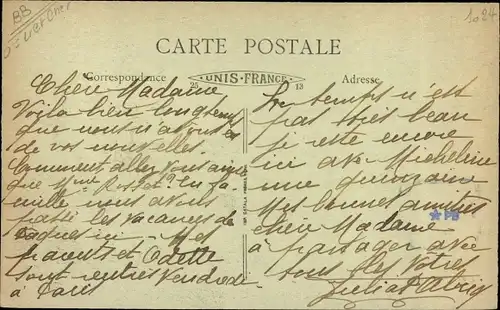 BB
1024
CARTE POSTALE
Correspondence
21 UNIS-FRANCE 13
Adresse
Chère Madame
Voila bien longtemps
que nous n'avons
de vos nouvelles.
Comment allez vous ainsi
que Mme ? En fa-
mille nous avons
passé les vacances de
Paques ici. Mes
parents et Odette
sont rentrés Vendredi
à Paris
Le temps n'est
pas très beau
je reste encore
ici avec Micheline
une quinzaine
Mes bonnes amitiés
chère Madame
à partager avec
tous les vôtres
*PB